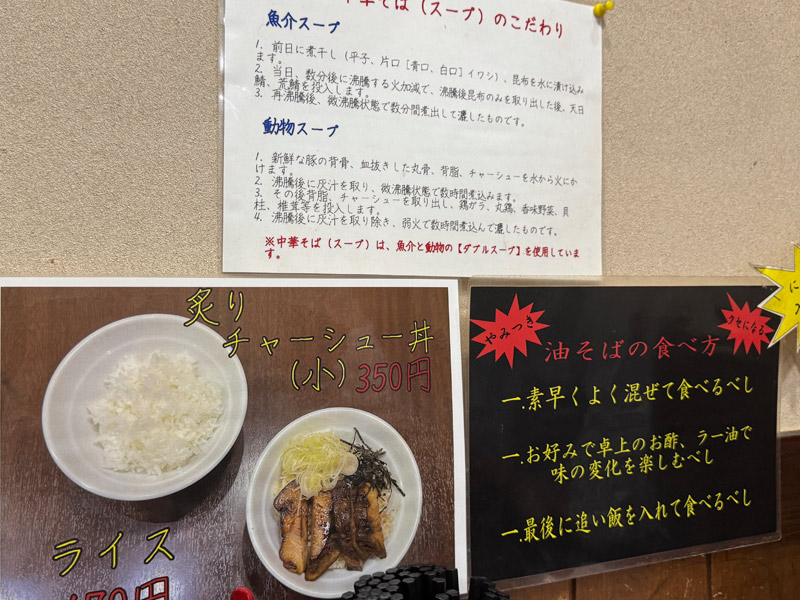 中華そば（スープ）のこだわり
魚介スープ
1. 前日に煮干し（平子、片口［青口、白口］イワシ）、昆布を水に漬け込み
ます。
2. 当日、数分後に沸騰する火加減で、沸騰後昆布のみを取り出した後、天日
鯖、荒鯖を投入します。
3. 再沸騰後、微沸騰状態で数分間煮出して濾したものです。
動物スープ
1. 新鮮な豚の背骨、血抜きした丸骨、背脂、チャーシューを水から火にか
けます。
2. 沸騰後に灰汁を取り、微沸騰状態で数時間煮込みます。
3. その後背脂、チャーシューを取り出し、鶏ガラ、丸鶏、香味野菜、貝
柱、椎茸等を投入します。
4. 沸騰後に灰汁を取り除き、弱火で数時間煮込んで濾したものです。
※中華そば（スープ）は、魚介と動物の【ダブルスープ】を使用していま
す。
炙り
チャーシュー丼
(小) 350円
ライス
170円
やみつき
クセになる
油そばの食べ方
一.素早くよく混ぜて食べるべし
一.お好みで卓上のお酢、ラー油で
味の変化を楽しむべし
一.最後に追い飯を入れて食べるべし
に